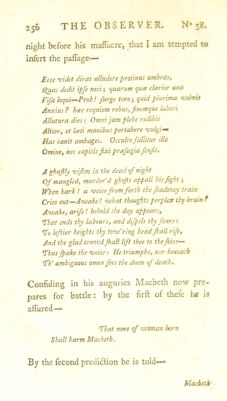 256 THE OBSERVER. Nº 58.
night before his massacre, that I am tempted to
insert the passage—
Ecce videt diras alludere protinus umbras,
Quas dedit ipse neci; quarum quæ clarior una
Visa loqui—Proh! surge toro; quid plurima volvis
Anxius? hæc requiem rebus, finemque labori
Allatura dies: Omni jam plebe redibis
Altior, et læti manibus portabere vulgi—
Has canit ambages. Occulto fallitur ille
Omine, nec capitis fixi præsagia sensit.
A ghastly vision in the dead of night
Of mangled, murder'd ghosts appall his sight;
When hark! a voice from forth the shadowy train
Cries out—Awake! what thoughts perplex thy brain?
Awake, arise! behold the day appears,
That ends thy labours, and dispels thy fears:
To loftier heights thy tow'ring head shall rise,
And the glad crowd shall lift thee to the skies—
Thus spake the voice: He triumphs, nor beneath
Th' ambiguous omen sees the doom of death.
Confiding in his auguries Macbeth now pre-
pares for battle: by the first of these he is
assured—
That none of woman born
Shall harm Macbeth.
By the second prediction he is told—
Macbeth